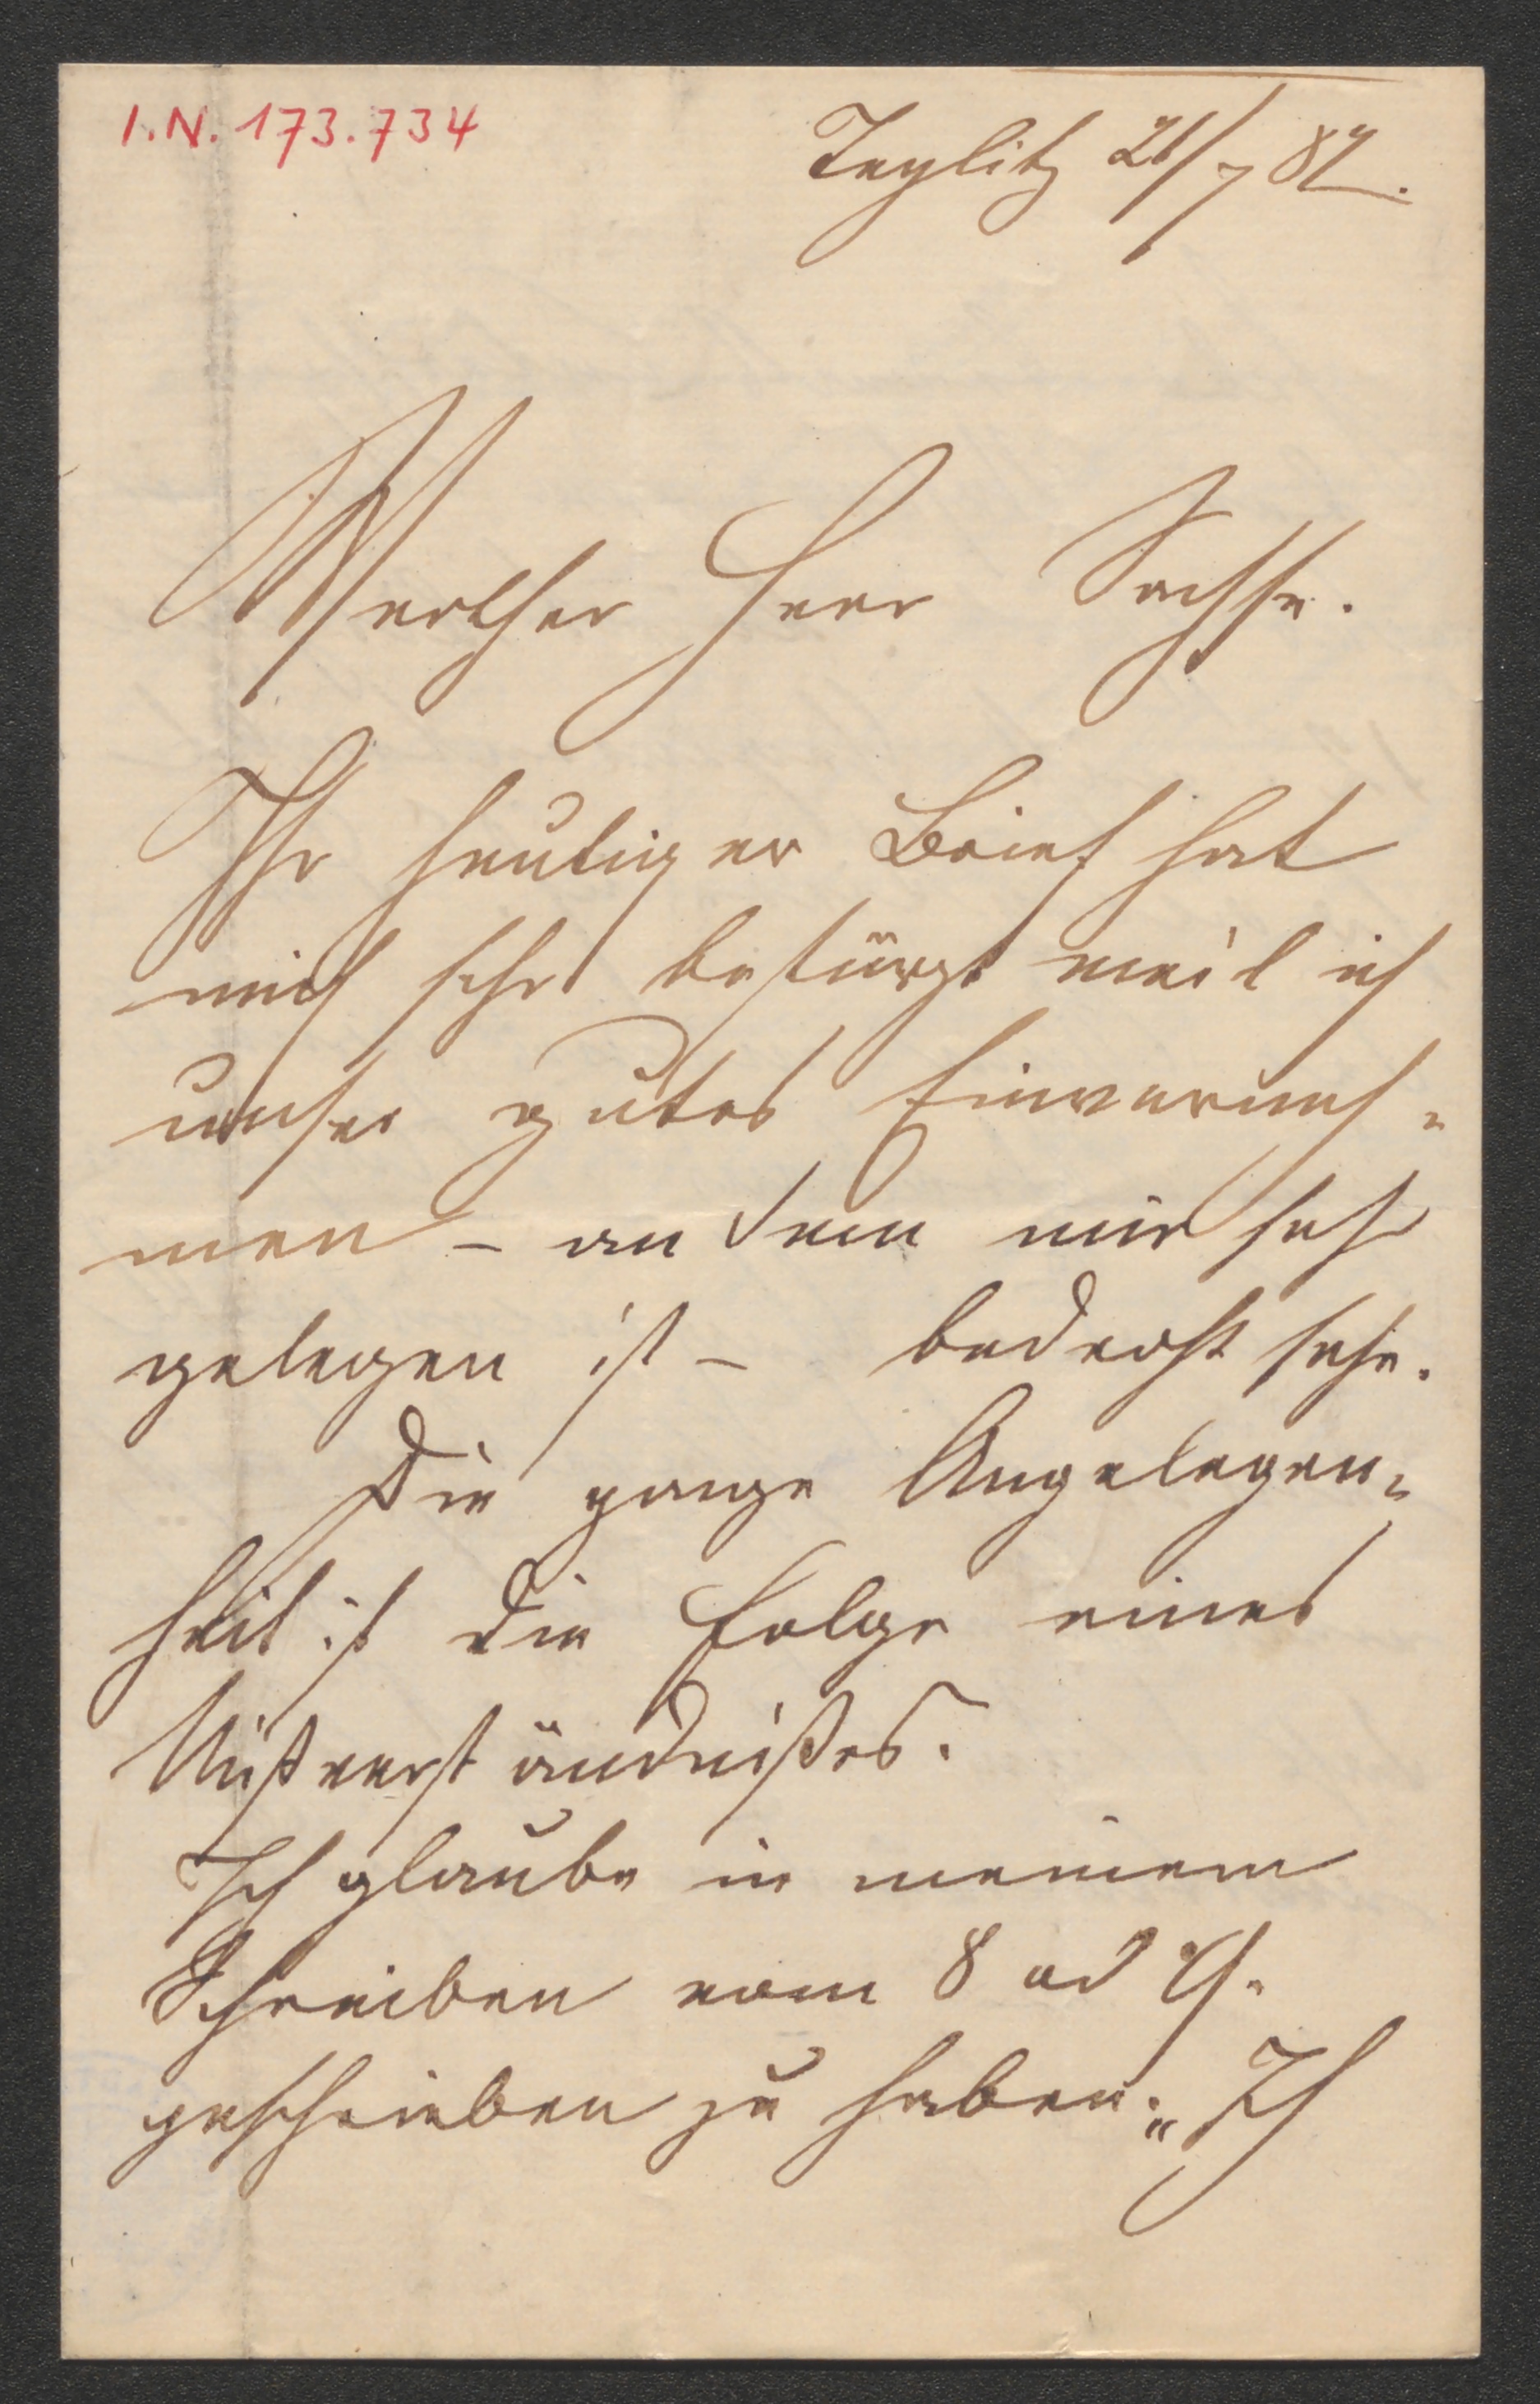 I.N. 173.734
Teplitz 21/7 87.
Werther Herr Sachse.
Ihr heutiger Brief hat
mich sehr bestürzt weil ich
unser gutes Einverneh-
men – an dem mir sehr
gelegen ist – bedroht sehe.
Die ganze Angelegen-
heit ist die Folge eines
Mißverständnißes.
Ich glaube in meinem
Schreiben vom 8 od 9.
geschrieben zu haben: „Ich